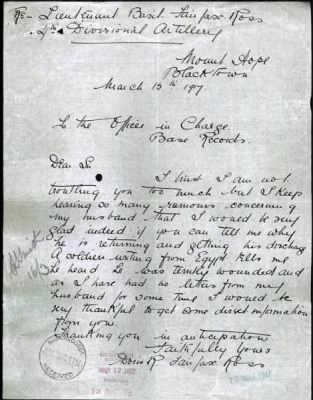 Re - Lieutenant Basil Fairfax Ross
4th Divisional Artillery
Mount Hope
Blacktown
March 15th 1917.
To the Officer in Charge.
Base Records.
Dear Sir
I trust I am not
troubling you too much but I keep
hearing so many rumours concerning
my husband that I would be very
glad indeed if you can tell me why
he is returning and getting his discharge
A soldier writing from Egypt tells me
he heard he was terribly wounded and
as I have had no letter from my
husband for some time I would be
very thankful to get some direct information
from you.
Thanking you in anticipation
Faithfully Yours
Doris R Fairfax Ross
RECEIVED
MAR 17 1917